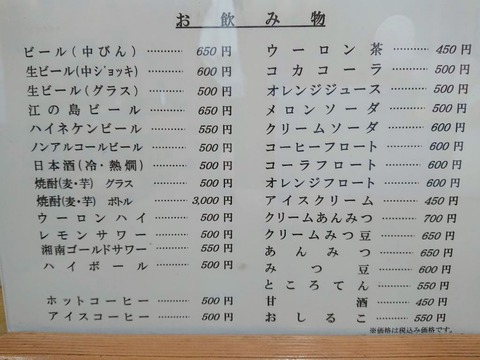 お飲み物
ビール(中びん) 650円
生ビール(中ジョッキ) 600円
生ビール(グラス) 500円
江の島ビール 650円
ハイネケンビール 550円
ノンアルコールビール 500円
日本酒(冷・熱燗) 500円
焼酎(麦・芋) グラス 500円
焼酎(麦・芋) ボトル 3,000円
ウーロンハイ 500円
レモンサワー 500円
湘南ゴールドサワー 550円
ハイボール 500円
ホットコーヒー 500円
アイスコーヒー 500円
ウーロン茶 450円
コカコーラ 500円
オレンジジュース 500円
メロンソーダ 500円
クリームソーダ 600円
コーヒーフロート 600円
コーラフロート 600円
オレンジフロート 600円
アイスクリーム 450円
クリームあんみつ 700円
クリームみつ豆 650円
あんみつ 650円
みつ豆 600円
ところてん 550円
甘酒 450円
おしるこ 550円
※価格は税込み価格です。